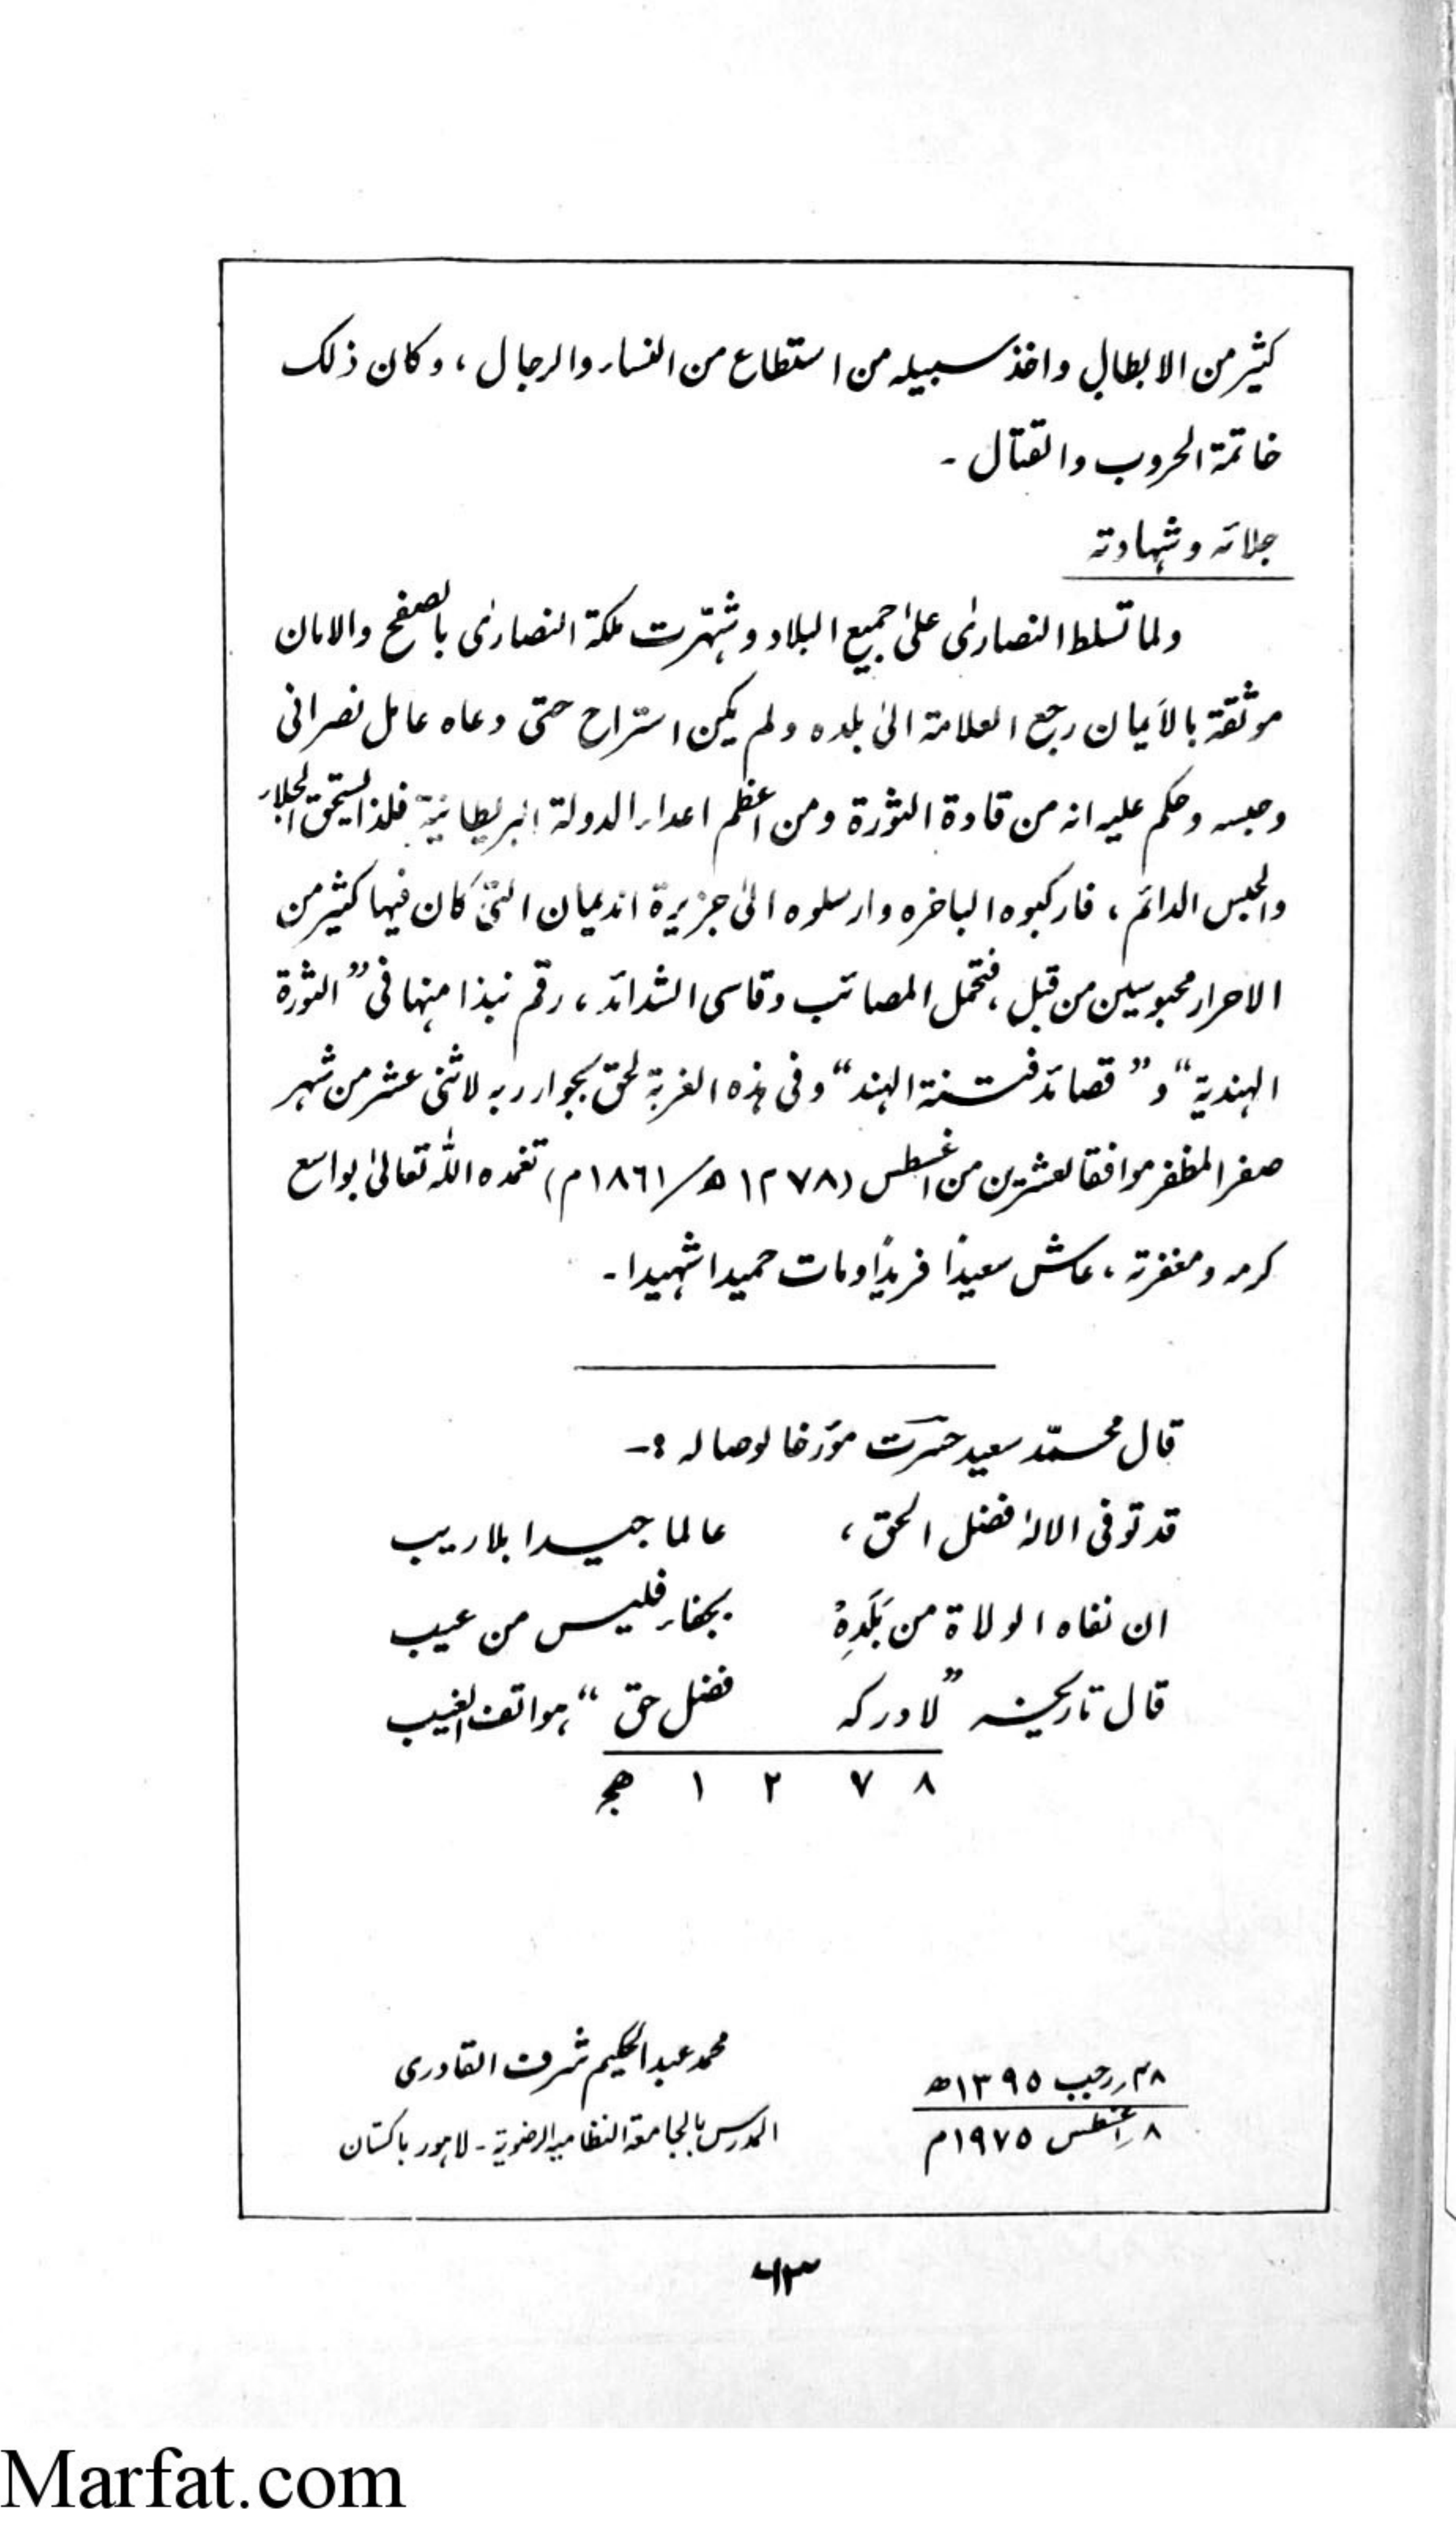 كثير من الابطال واخذ سبيله من استطاع من النساء والرجال ، وكان ذلك
خاتمة الحروب والقتال ـ
جلائه وشهادته
ولما تسلط النصارىٰ علىٰ جميع البلاد وشهّرت ملكة النصارىٰ بالصفح والامان
موثقة بالأيمان رجع العلامة الىٰ بلده ولم يكن استراح حتى دعاه عامل نصرانى
وحبسه وحكم عليه انه من قادة الثورة ومن اعظم اعداء الدولة البريطانية فلذا يستحق الجلاء
والحبس الدائم ، فاركبوه الباخره وارسلوه الىٰ جزيرة انديمان التى كان فيها كثير من
الاحرار محبوسين من قبل ، فتحمل المصائب وقاسى الشدائد ، رقم نبذا منها فى ”الثورة
الهندية“ و ”قصائد فتنة الهند“ وفى هذه الغربة لحق بجوار ربه لاثنى عشر من شهر
صفر المظفر موافقا لعشرين من اغسطس (١٢٧٨ھ/١٨٦١م) تغمده الله تعالىٰ بواسع
كرمه ومغفرته ، عاش سعيدًا فريدًا ومات حميدا شهيدا ـ
قال محمّد سعيد حسرت مؤرخا لوصاله :ـ
قد توفى الالٰه فضل الحق ، عالما جيدا بلا ريب
ان نفاه الولاة من بَلَدِهْ بجفاء فليس من عيب
قال تاريخه ”لادركه فضل حق“ هواتف الغيب
١٢٧٨ هج
محمد عبد الحكيم شرف القادرى
المدرس بالجامعة النظامية الرضوية ـ لاہور پاکستان
٢٨ رجب ١٣٩٥ھ
٨ اغسطس ١٩٧٥م
٦٢٣
Marfat.com